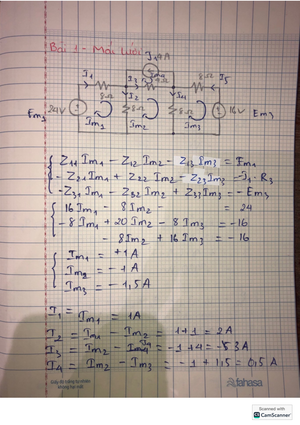 Bài 1 - Mai lưới
I₁ I₃ 4A I₅
8Ω I₂ I₄ 8Ω
24V 8Ω 8Ω 16V
Em₁ Im₁ Im₂ Im₃ Em₃
Z₁₁ Im₁ - Z₁₂ Im₂ - Z₁₃ Im₃ = Em₁
- Z₂₁ Im₁ + Z₂₂ Im₂ - Z₂₃ Im₃ = -J₁.R₃
-Z₃₁ Im₁ - Z₃₂ Im₂ + Z₃₃ Im₃ = - Em₃
16 Im₁ - 8 Im₂ = 24
- 8 Im₁ + 20 Im₂ - 8 Im₃ = -16
- 8 Im₂ + 16 Im₃ = -16
Im₁ = +1A
Im₂ = -1A
Im₃ = -1,5A
I₁ = Im₁ = 1A
I₂ = Im₁ - Im₂ = 1+1 = 2A
I₃ = Im₂ - = -1+4 = 3A
I₄ = Im₂ - Im₃ = -1+1,5 = 0,5A
fahasa
Scanned with
CS CamScanner